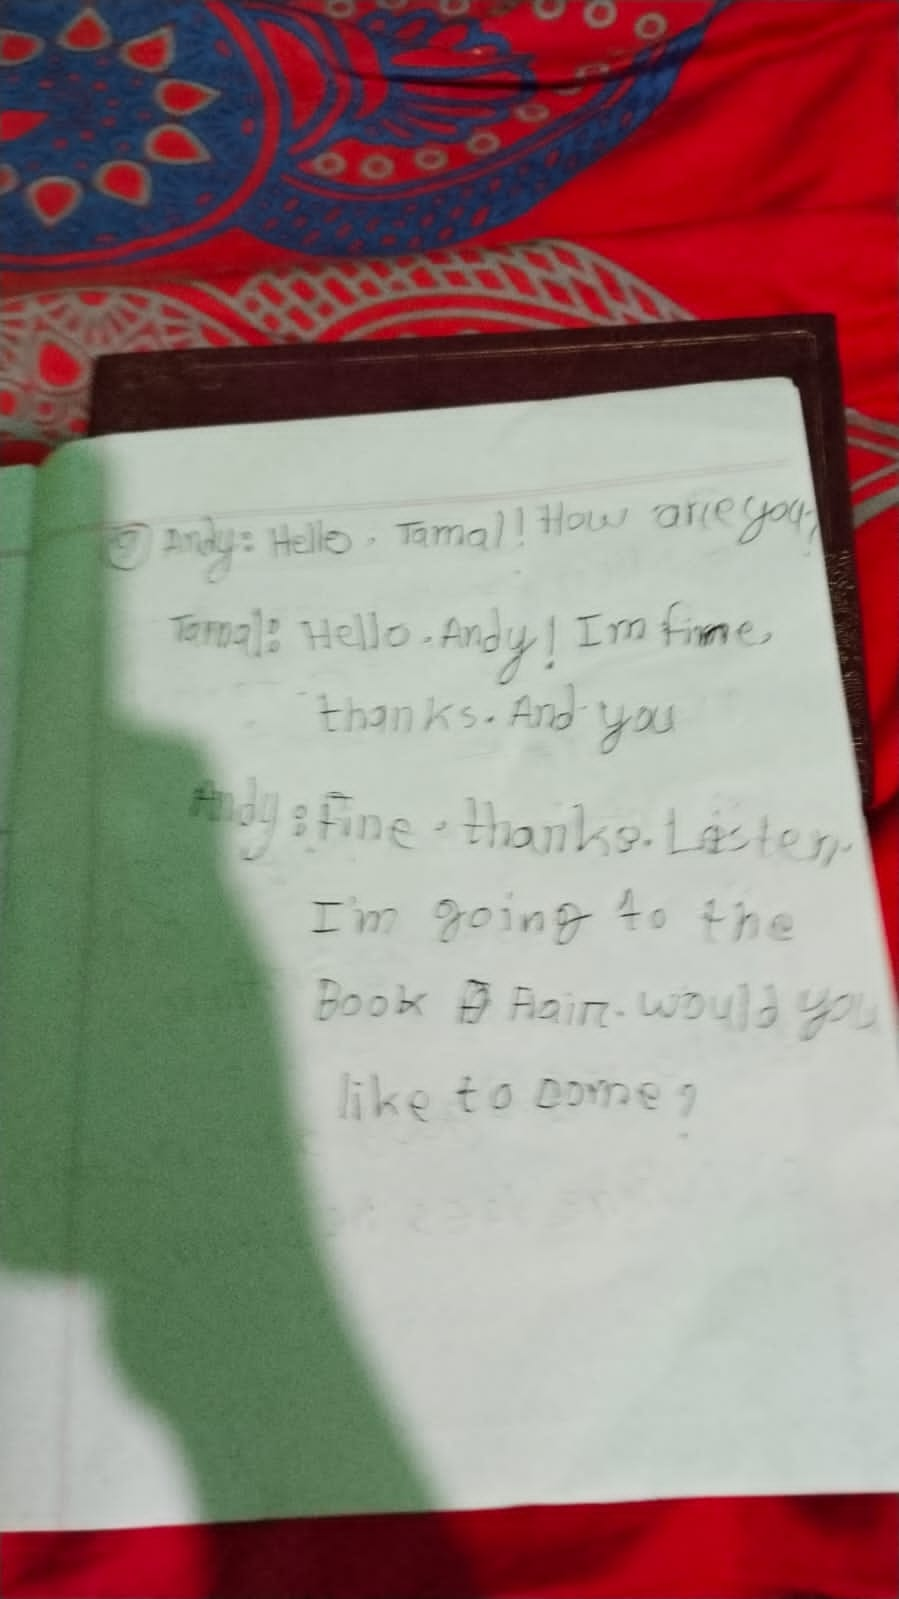 9) Andy: Hello, Tamal! How are you?
Tamal: Hello, Andy! Im fine,
thanks. And you
Andy: Fine, thanks. Listen,
I'm going to the
Book Fair. would you
like to come?